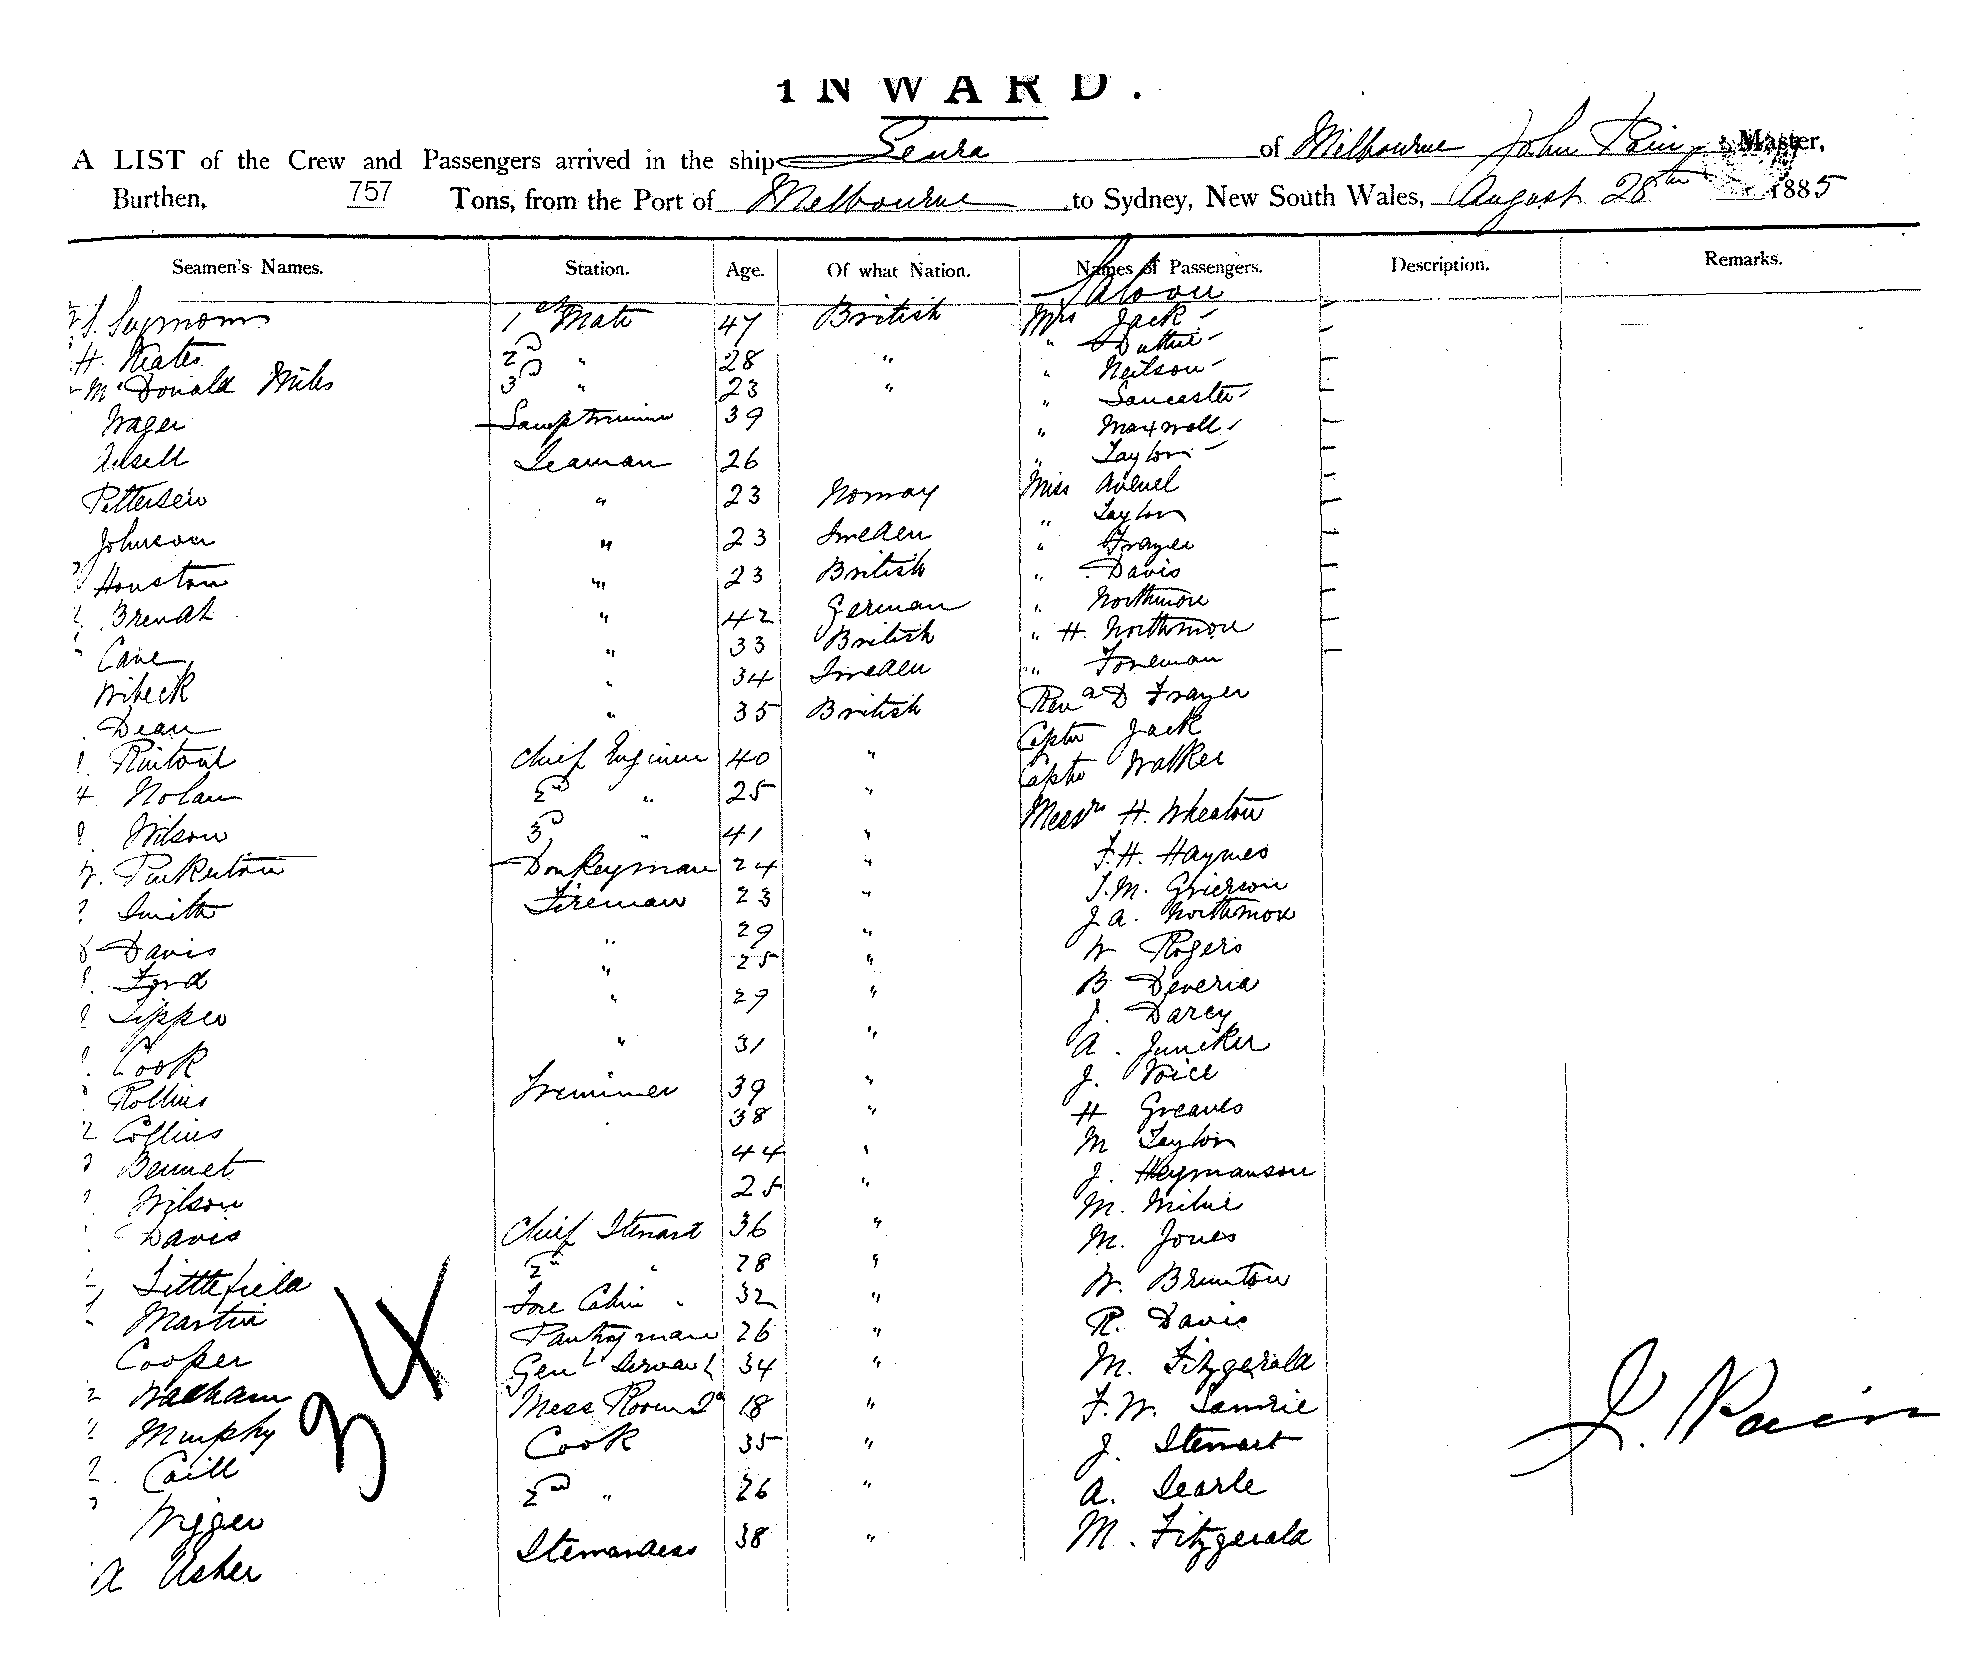 INWARD.
A LIST of the Crew and Passengers arrived in the ship of Melbourne John Pain, Master,
Burthen, 757 Tons, from the Port of Melbourne to Sydney, New South Wales, August 28th 1885
Seamen's Names. Station. Age. Of what Nation. Names of Passengers. Description. Remarks.
Saloon
1st Mate 47 British Mrs Jack
H. 2nd " 28 " " Duthie
McDonald Miles 3rd " 23 " " Neilson
Wager Lamptrimmer 39 " Lancaster
Seaman 26 " Maxwell
Pettersen " 23 Norway " Taylor
Johnson " 23 Sweden Miss Avenel
Houston " 23 British " Taylor
Brendt " 42 German " Frazer
Cave " 33 British " Davis
Wibeck " 34 Sweden " Northmore
Dean " 35 British " H. Northmore
Rintoul Chief Engineer 40 " " Foreman
Nolan 2nd " 25 " Revd D Frazer
Wilson 3rd " 41 " Captn Jack
Pinkerton Donkeyman 24 " Captn Walker
Smith Fireman 23 " Messrs H. Wheaton
Davis " 29 " F. H. Haynes
Ford " 25 " J. M. Grierson
" 29 " J. A. Northmore
Cook " 31 " W Rogers
Rollins Trimmer 39 " B Deveria
Collins 38 " J. Darcy
Bennet 44 " A. Juncker
Wilson 25 " J. Voice
Davis Chief Stewart 36 " H Greaves
Littlefield 2nd " 28 " M Taylor
Martin Fore Cabin " 32 " J. Heymanson
Cooper Pantryman 26 " M. Milne
Wadham Genl Servant 34 " M. Jones
Murphy Mess Room Do 18 " W. Brunton
Caill Cook 35 " R. Davis
2nd " 26 " M. Fitzgerald
A Usher Stewardess 38 " F. W.
J. Stewart
A. Searle
M. Fitzgerald
34
J. Pain